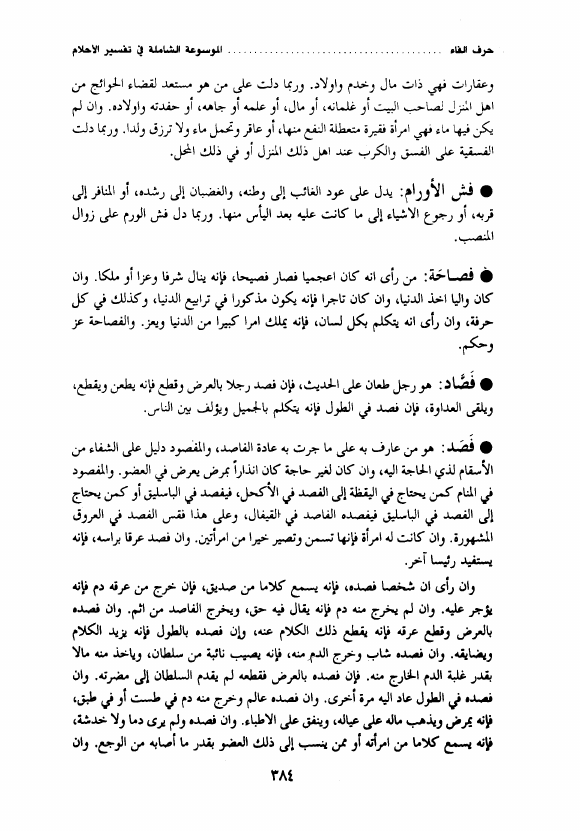 حرف الفاء ........................................ الموسوعة الشاملة في تفسير الأحلام
وعقارات فهي ذات مال وخدم واولاد. وربما دلت على من هو مستعد لقضاء الحوائج من
اهل المنزل لصاحب البيت أو غلمانه، أو مال، أو علمه أو جاهه، أو حفدته واولاده. وان لم
يكن فيها ماء فهي امرأة فقيرة متعطلة النفع منها، أو عاقر وتحمل ماء ولا ترزق ولدا. وربما دلت
الفسقية على الفسق والكرب عند اهل ذلك المنزل أو في ذلك المحل.
● فش الأورام: يدل على عود الغائب إلى وطنه، والغضبان إلى رشده، أو المنافر إلى
قربه، أو رجوع الاشياء إلى ما كانت عليه بعد اليأس منها. وربما دل فش الورم على زوال
المنصب.
● فصاحَة: من رأى انه كان اعجميا فصار فصيحا، فإنه ينال شرفا وعزا أو ملكا. وان
كان واليا اخذ الدنيا، وان كان تاجرا فإنه يكون مذكورا في ترابيع الدنيا، وكذلك في كل
حرفة، وان رأى انه يتكلم بكل لسان، فإنه يملك امرا كبيرا من الدنيا ويعز. والفصاحة عز
وحكم.
● فَصَّاد: هو رجل طعان على الحديث، فإن فصد رجلا بالعرض وقطع فإنه يطعن ويقطع،
ويلقى العداوة، فإن فصد في الطول فإنه يتكلم بالجميل ويؤلف بين الناس.
● فَصَد: هو من عارف به على ما جرت به عادة الفاصد، والمفصود دليل على الشفاء من
الأسقام لذي الحاجة اليه، وان كان لغير حاجة كان انذاراً بمرض يعرض في العضو. والمفصود
في المنام كمن يحتاج في اليقظة إلى الفصد في الأكحل، فيفصد في الباسليق أو كمن يحتاج
إلى الفصد في الباسليق فيفصده الفاصد في القيفال، وعلى هذا فقس الفصد في العروق
المشهورة. وان كانت له امرأة فإنها تسمن وتصير خيرا من امرأتين. وان فصد عرقا براسه، فإنه
يستفيد رئيسا آخر.
وان رأى ان شخصا فصده، فإنه يسمع كلاما من صديق، فإن خرج من عرقه دم فإنه
يؤجر عليه. وان لم يخرج منه دم فإنه يقال فيه حق، ويخرج الفاصد من اثم. وان فصده
بالعرض وقطع عرقه فإنه يقطع ذلك الكلام عنه، وإن فصده بالطول فإنه يزيد الكلام
ويضايقه. وان فصده شاب وخرج الدم منه، فإنه يصيب نائبة من سلطان، وياخذ منه مالا
بقدر غلبة الدم الخارج منه. فإن فصده بالعرض فقطعه لم يقدم السلطان إلى مضرته. وان
فصده في الطول عاد اليه مرة أخرى. وان فصده عالم وخرج منه دم في طست أو في طبق،
فإنه يمرض ويذهب ماله على عياله، وينفق على الاطباء. وان فصده ولم يرى دما ولا خدشة،
فإنه يسمع كلاما من امرأته أو ممن ينسب إلى ذلك العضو بقدر ما أصابه من الوجع. وان
٣٨٤